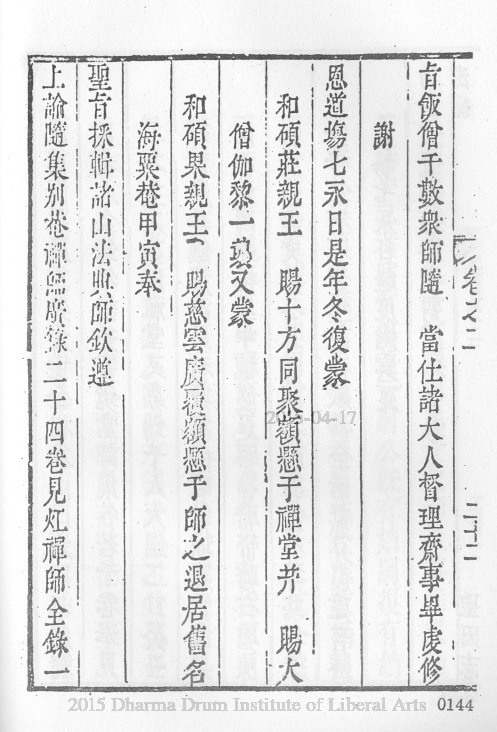 卷之二
二十二
旨飯僧千數衆師隨 當仕諸大人督理齋事畢虔修
謝
恩道塲七永日是年冬復蒙
和碩莊親王 賜十方同聚額懸于禪堂并 賜大
僧伽黎一襲又蒙
和碩果親王 賜慈雲廣覆額懸于師之退居舊名
海粟菴甲寅奉
聖旨採輯諸山法典師欽遵
上諭隨集別菴禪師廣錄二十四卷見灴禪師全錄一
-04-17
2015 Dharma Drum Institute of Liberal Arts 0144